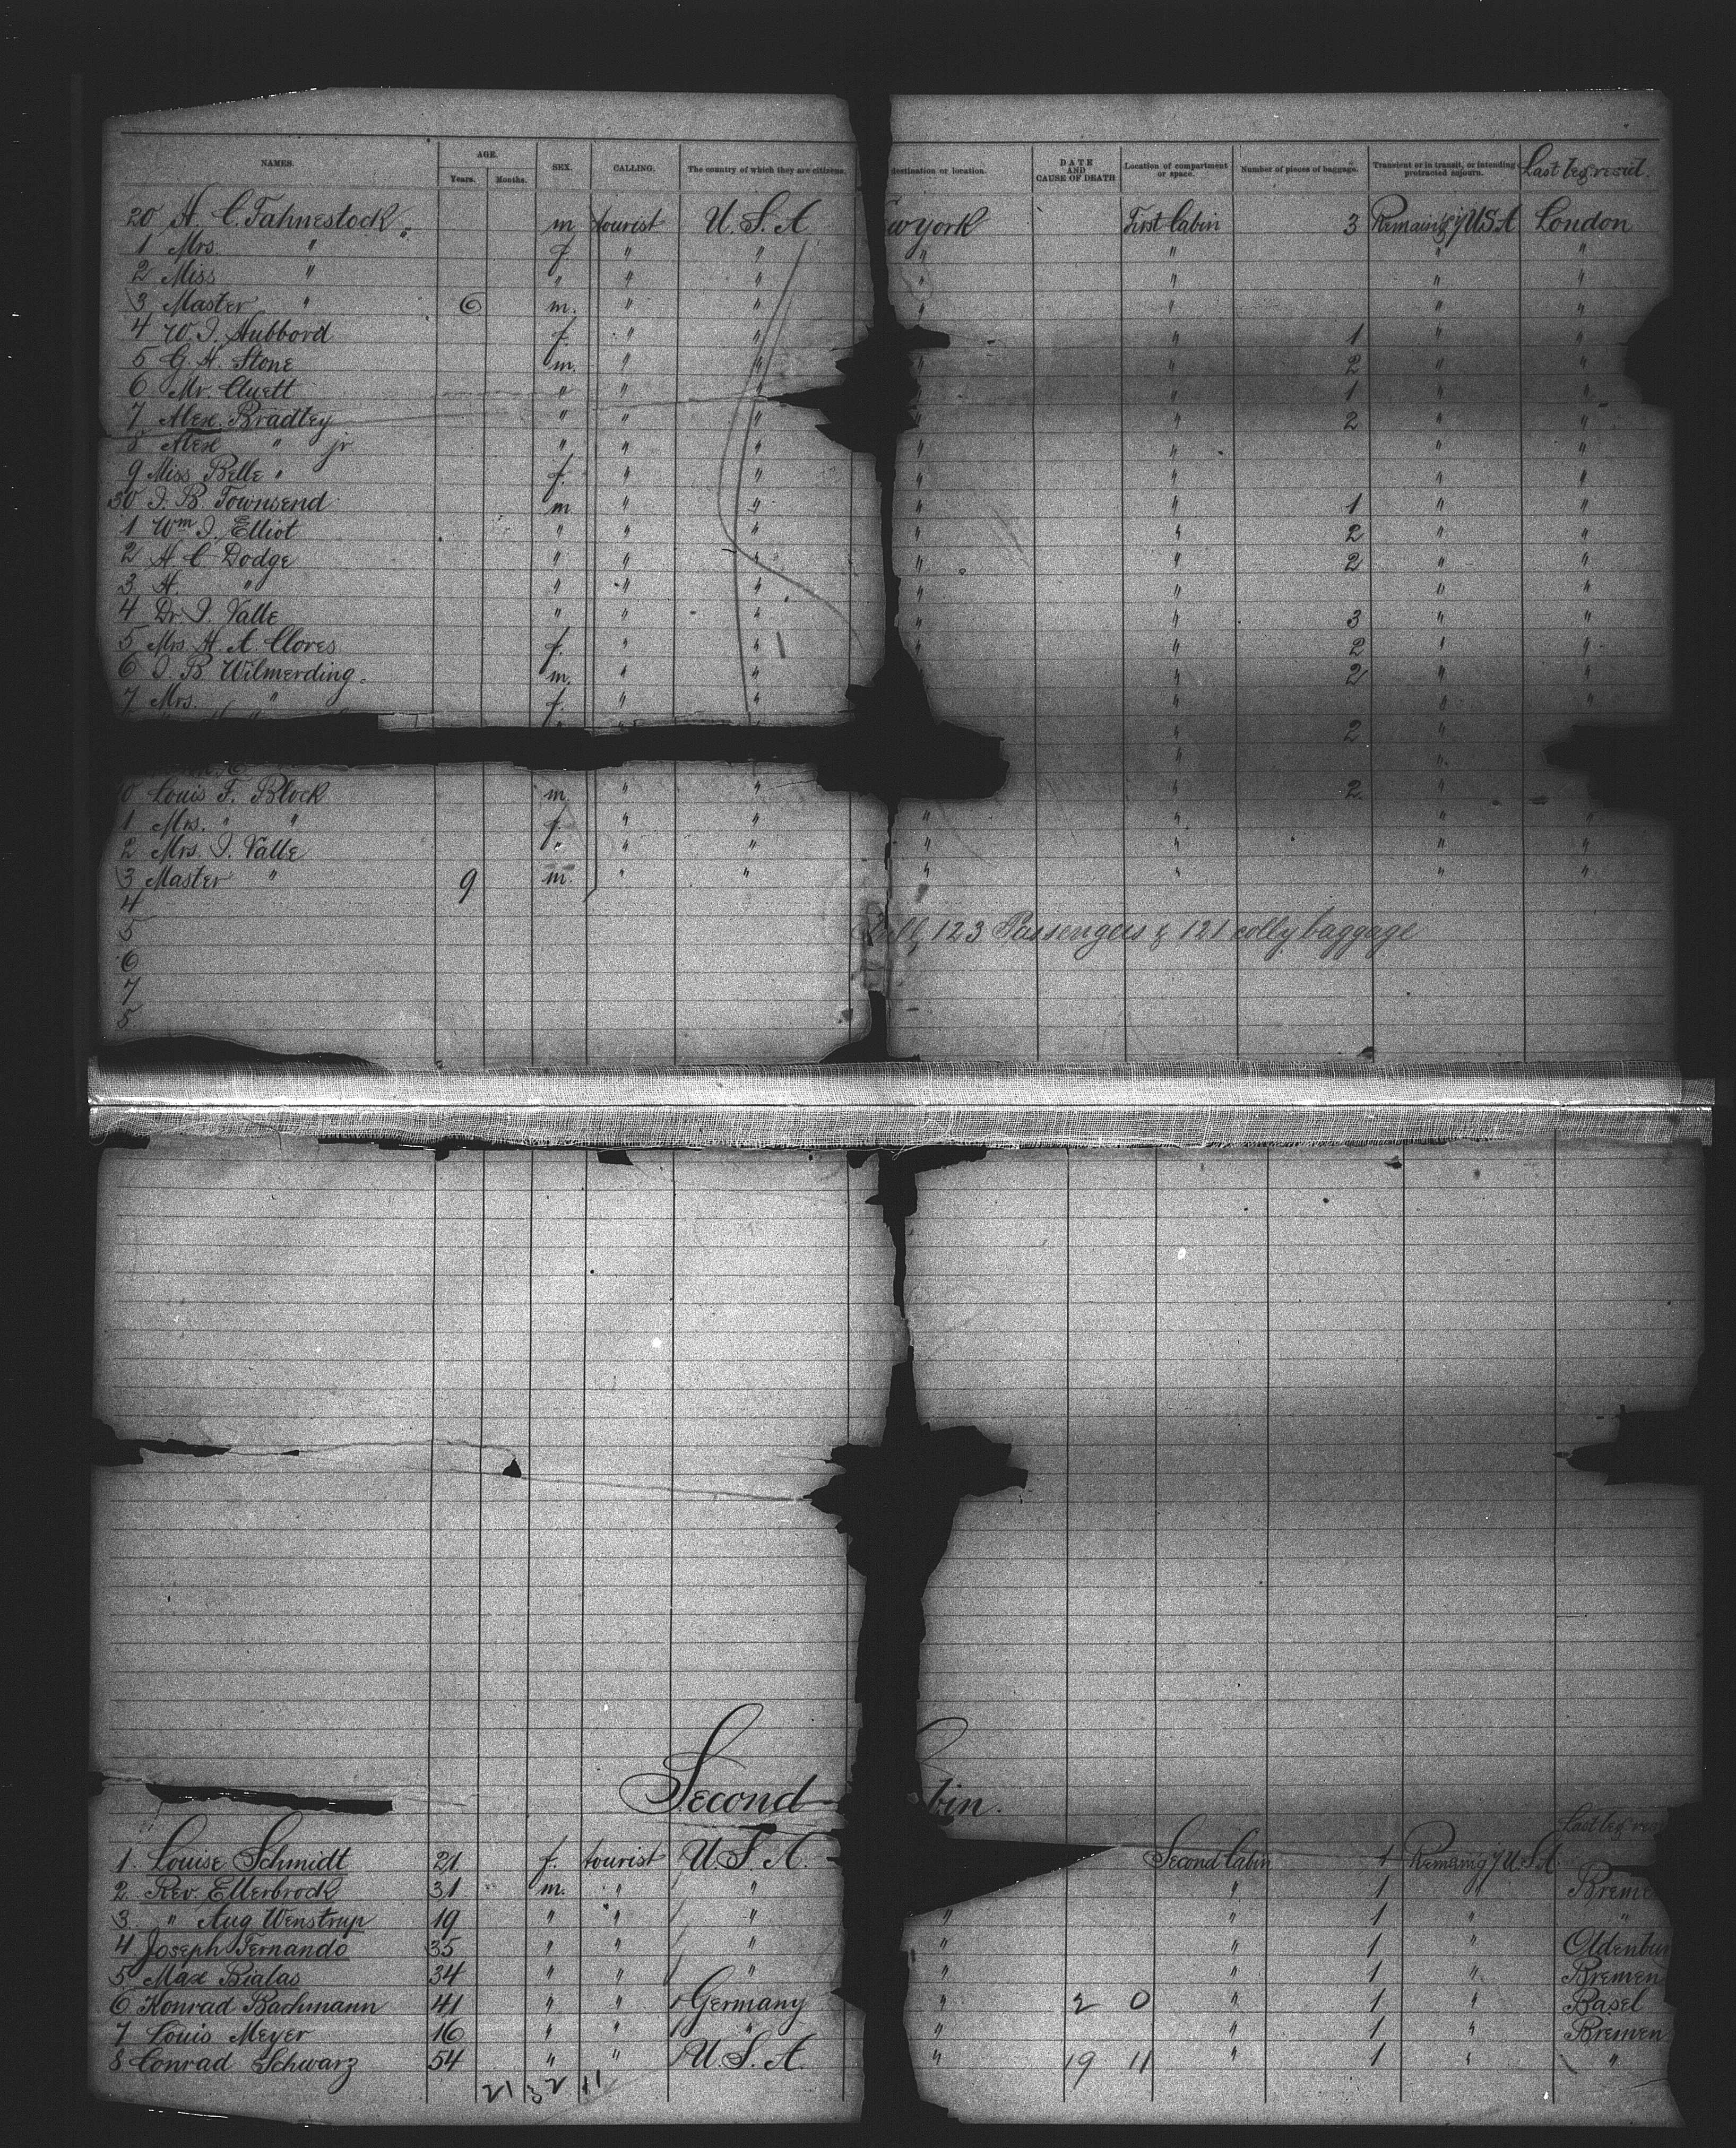 NAMES. AGE. Years. Months. SEX. CALLING. The country of which they are citizens. destination or location. DATE AND CAUSE OF DEATH Location of compartment or space. Number of pieces of baggage. Transient or in transit, or intending protracted sojourn. Last leg. resid.
20 H. C. Fahnestock m tourist U. S. A. w york First Cabin 3 Remaing i/ USA London
1 Mrs. " f. " " " " " "
2 Miss " " " " " " " "
3 Master " 6 m. " " " " " "
4 W. J. Hubbord f. " " " 1 " "
5 G. H. Stone m. " " " " 2 " "
6 Mr. Cluett " " " " " 1 " "
7 Alex. Bradley " " " " " 2 " "
8 Alex " jr. " " " " " " "
9 Miss Belle " f. " " " " " "
30 J. B. Townsend m " " " " 1 " "
1 Wm J. Elliot " " " " " 2 " "
2 H. C. Dodge " " " " " 2 " "
3 H. " " " " " " " "
4 Dr. J. Valle " " " " " 3 " "
5 Mrs. H. A. Clores f. " " " " 2 " "
6 J. B. Wilmerding m. " " " " 2 " "
7 Mrs. " f. " " " " " "
" 2 "
" "
0 Louis F. Block m. " " " 2 "
1 Mrs. " " f. " " " " " "
2 Mrs. J. Valle " " " " " " "
3 Master " 9 m. " " " " " "
4
5 123 Passengers & 121 colly baggage
6
7
5
Second bin.
Last leg. res
1. Louise Schmidt 21 f. tourist U. S. A. Second Cabin 1 Remaing i/ U.S.A.
2. Rev. Ellerbrock 31 m. " " " 1 " Breme
3. " Aug. Wenstrup 19 " " " " " 1 " "
4 Joseph Fernando 35 " " " " " 1 " Oldenbur
5 Max Bialas 34 " " " " " 1 " Bremen
6 Konrad Bachmann 41 " " Germany " 2 0 " 1 " Basel
7 Louis Meyer 16 " " " " " 1 " Bremen
8 Conrad Schwarz 54 " " U. S. A. " 19 11 " 1 " "
21 32 11